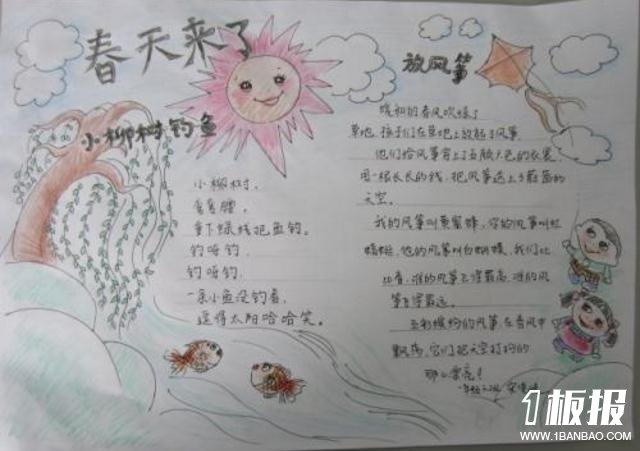 春天来了
小柳树钓鱼
小柳树,
弯弯腰,
垂下绿线把鱼钓。
钓呀钓,
钓呀钓,
一条小鱼没钓着,
逗得太阳哈哈笑。
放风筝
暖和的春风吹绿了
草地,孩子们在草地上放起了风筝。
他们给风筝穿上了五颜六色的衣裳,
用一根长长的线,把风筝送上了蓝蓝的
天空。
我的风筝叫黄蜜蜂,你的风筝叫红
蜻蜓,他的风筝叫白蝴蝶,我们比
比看,谁的风筝飞得最高,谁的风
筝飞得最远。
五彩缤纷的风筝在春风中
飘荡,它们把天空打扮的
那么漂亮!
1板报
WWW.1BANBAO.COM